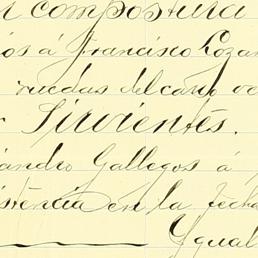 compostura
á Francisco Lozan
ruedas del carro ve
Sirvientes.
andro Gallegos á
istencia en la fecha
Ygual